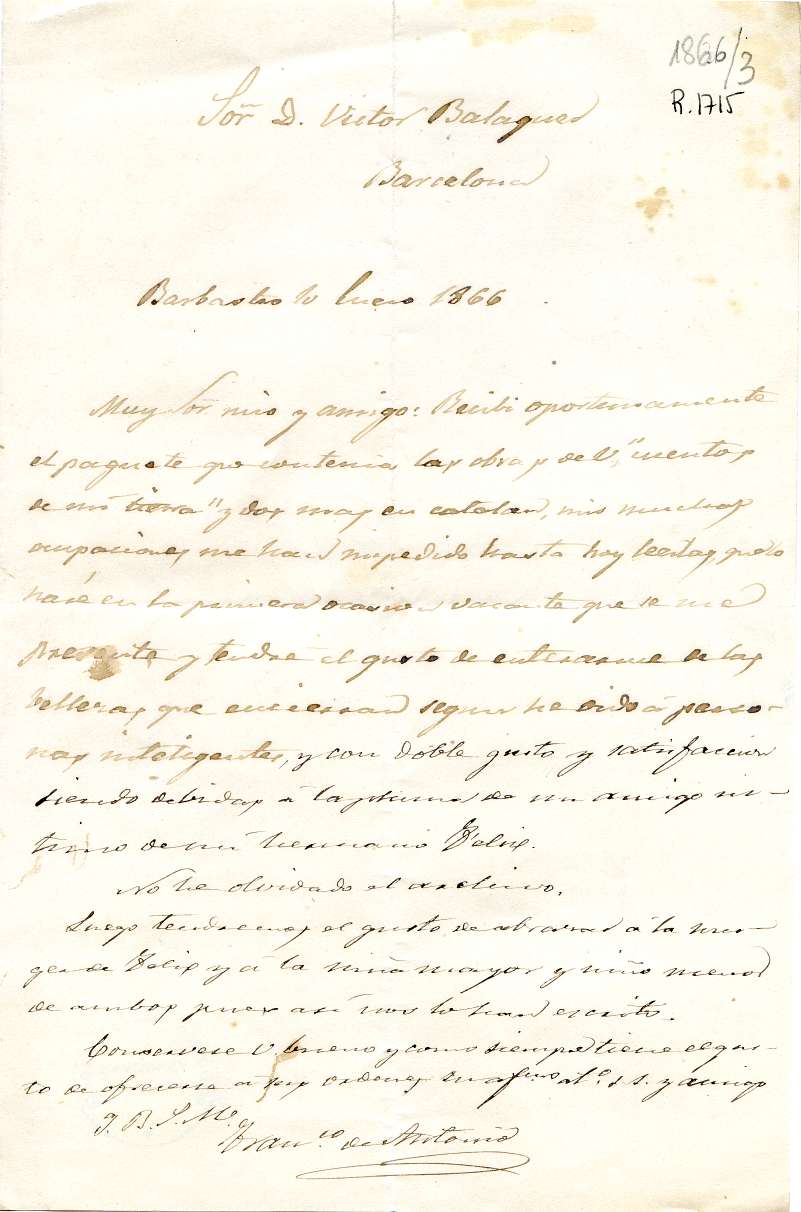 1866/3
R.1715
Sor. D. Victor Balaguer
Barcelona
Barbastro 10 Enero 1866
Muy Sor. mio y amigo: Recibi oportunamente
el paquete que contenia las obras de V. "Cuentos
de mi tierra" y dos mas en catalan, mis muchas
ocupaciones me han impedido hasta hoy leerlas, que lo
haré en la primera ocasion vacante que se me
presente y tendré el gusto de enterarme de las
bellezas que encierran segun he oido á perso-
nas inteligentes, y con doble gusto y satisfaccion
siendo debidas á la pluma de un amigo in-
timo de mi hermano Felix.
No he olvidado el archivo.
Luego tendremos el gusto de abrazar á la mu-
ger de Felix y á la niña mayor y niño menor
de ambos pues así nos lo han escrito.
Conservese V. bueno y como siempre tiene el gus-
to de ofrecerse á sus ordenes su afmo. s. s. y amigo
Q. B. S. M.
Franco. de Antonio